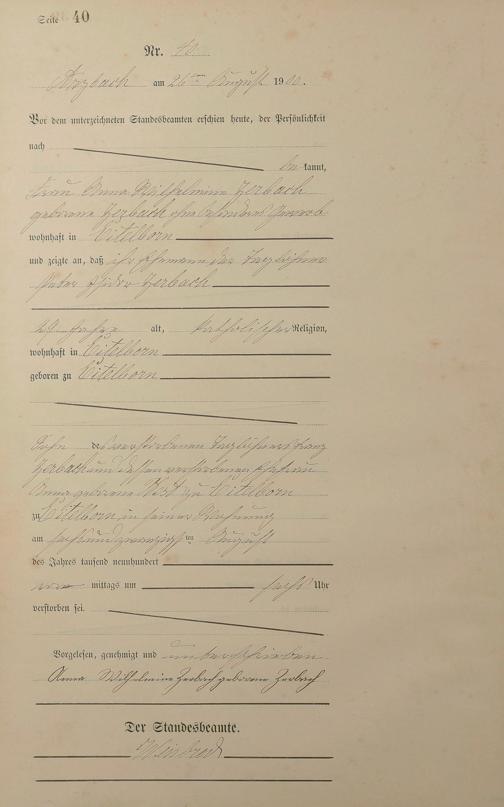 Seite 40
Nr. 40
Arzbach am 26ten August 1900.
Vor dem unterzeichneten Standesbeamten erschien heute, der Persönlichkeit
nach
be kannt,
Frau Anna Wilhelmine Zerbach
geborene Zerbach ohne besonderes Gewerb
wohnhaft in Eitelborn
und zeigte an, daß ihr Ehemann der Taglöhner
Peter Isidor Zerbach
29 Jahre alt, katholischer Religion,
wohnhaft in Eitelborn
geboren zu Eitelborn
Sohn verstorbenen Taglöhners Franz
Zerbach und dessen verstorbenen Ehefrau
Anna geborene zu Eitelborn
zu Eitelborn in seiner Wohnung
am sechsundzwanzigsten August
des Jahres tausend neunhundert
vor mittags um sechs Uhr
verstorben sei.
Vorgelesen, genehmigt und unterschrieben
Anna Wilhelmine Zerbach geborene Zerbach
Der Standesbeamte.